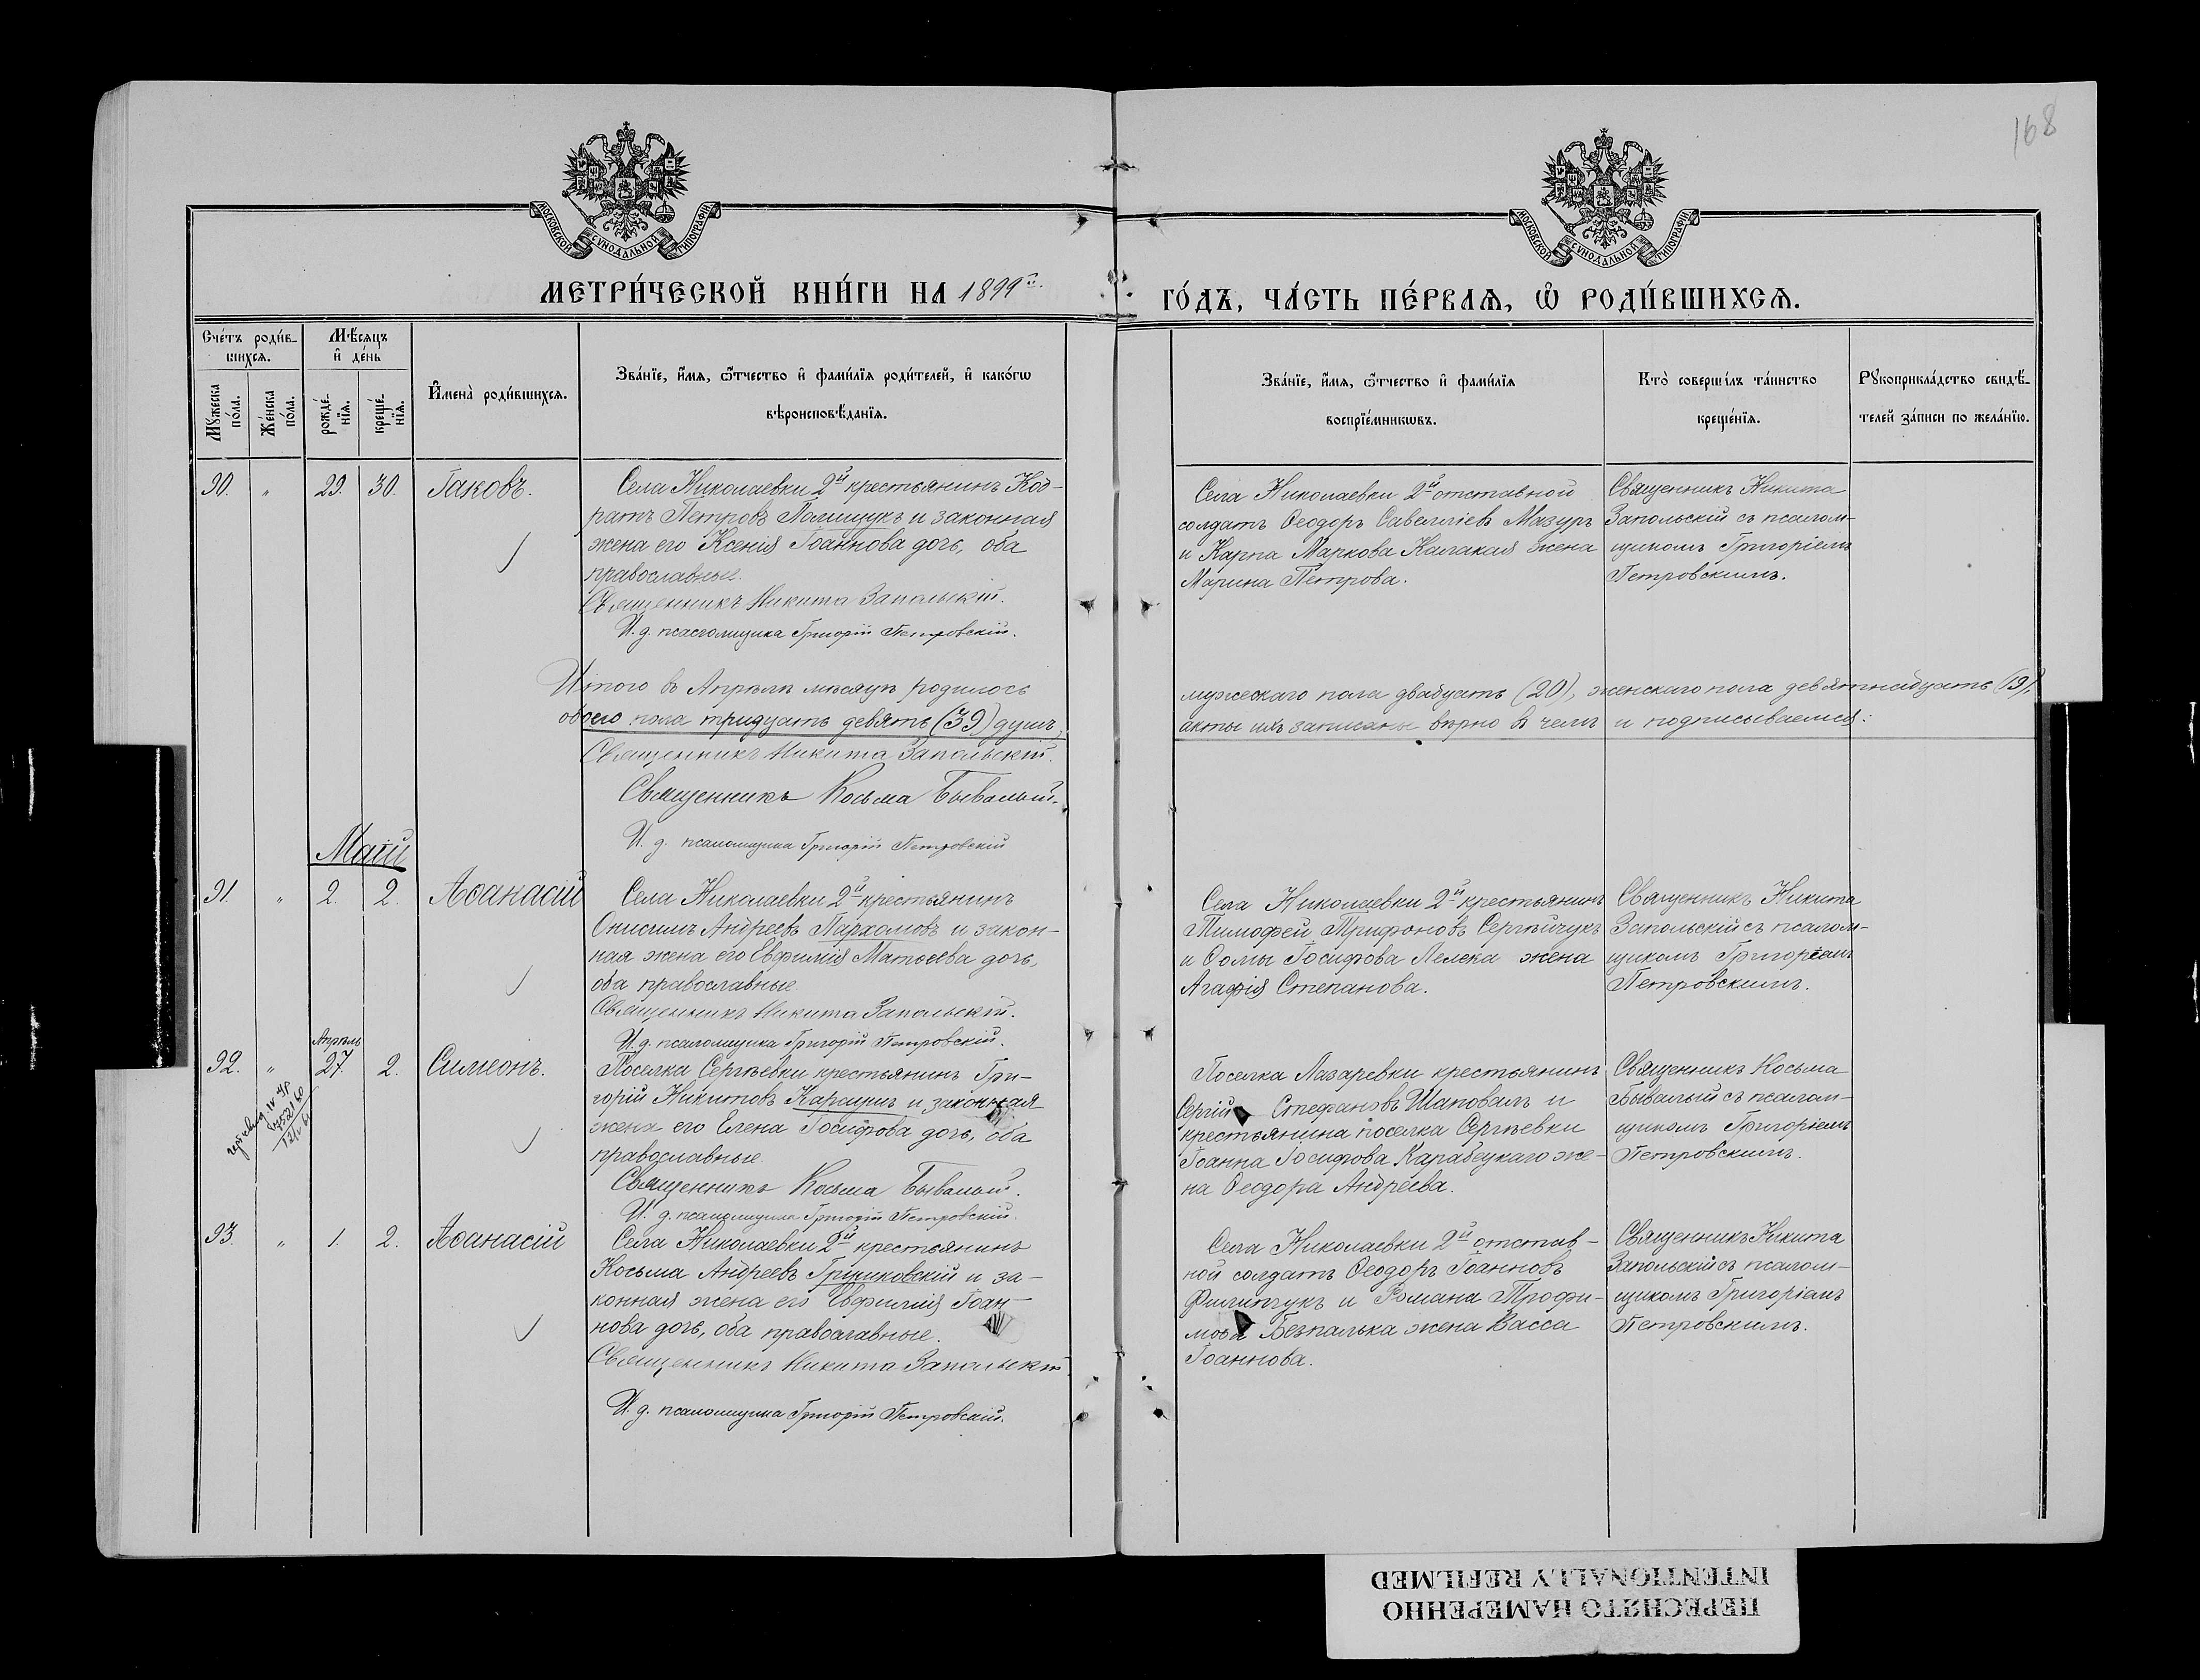 168
МОСКОВСКОЙ СѴНОДАЛЬНОЙ ТИПОГРАФІИ
МОСКОВСКОЙ СѴНОДАЛЬНОЙ ТИПОГРАФІИ
МЕТРИ́ЧЕСКОЙ КНИ́ГИ НА 1899й.
ГО́ДЪ, ЧА́СТЬ ПЕ́РВАѦ, Ѽ РОДИ́ВШИХСѦ.
Сче́тъ роди́в-
шихсѧ.
Мѣ́сѧцъ
и҆ де́нь
Мꙋ́жеска по́ла.
Же́нска по́ла.
рожде́-нїѧ.
креще́-нїѧ.
И҆мена̀ роди́вшихсѧ.
Зва́нїе, и҆́мѧ, ѻ҆́тчество и҆ фами́лїѧ роди́телей, и҆ како́гѡ
вѣроисповѣ́данїѧ.
Зва́нїе, и҆́мѧ, ѻ҆́тчество и҆ фами́лїѧ
воспрїе́мникѡвъ.
Кто̀ соверши́лъ та́инство
креще́нїѧ.
Рꙋкоприкла́дство свидѣ́-
телей за́писи по жела́нїю.
90. " 29. 30. Іаковъ.
Села Николаевки 2й крестьянинъ Код-
ратъ Петровъ Полищукъ и законная
жена его Ксенія Іоаннова дочь, оба
православные.
Священникъ Никита Запольскій.
И. д. псаломщика Григорій Петровскій.
Села Николаевки 2й отставной
солдатъ Ѳеодоръ Савелліевъ Мазуръ
и Карпа Маркова Калакая жена
Марина Петрова.
Священникъ Никита
Запольскій съ псалом-
щикомъ Григоріемъ
Петровскимъ.
Итого въ Апрѣлѣ мѣсяцѣ родилось
обоего пола тридцать девять (39) душъ,
мужескаго пола двадцать (20), женскаго пола девятнадцать (19),
акты ихъ записаны вѣрно въ чемъ и подписываемся:
Священникъ Никита Запольскій.
Священникъ Косьма Бывалый.
И. д. псаломщика Григорій Петровскій
Маій
91. " 2. 2. Аѳанасій
Села Николаевки 2й крестьянинъ
Онисимъ Андреевъ Пархомовъ и закон-
ная жена его Евфимія Матѳеева дочь,
оба православные.
Священникъ Никита Запольскій.
И. д. псаломщика Григорій Петровскій.
Села Николаевки 2й крестьянинъ
Тимофей Трифоновъ Сергѣйчукъ
и Ѳомы Іосифова Лелека жена
Агафія Степанова.
Священникъ Никита
Запольскій съ псалом-
щикомъ Григоріемъ
Петровскимъ.
Апрѣль
92. " 27. 2. Симеонъ.
Поселка Сергѣевки крестьянинъ Гри-
горій Никитовъ Карацупъ и законная
жена его Елена Іосифова дочь, оба
православные.
Священникъ Косьма Бывалый.
И. д. псаломщика Григорій Петровскій.
Поселка Лазаревки крестьянинъ
Сергій Стефановъ Шаповалъ и
крестьянина поселка Сергѣевки
Іоанна Іосифова Карабецкаго же-
на Ѳеодора Андреева.
Священникъ Косьма
Бывалый съ псалом-
щикомъ Григоріемъ
Петровскимъ.
93. " 1. 2. Аѳанасій
Села Николаевки 2й крестьянинъ
Косьма Андреевъ Гриниковскій и за-
конная жена его Евфимія Іоан-
нова дочь, оба православные.
Священникъ Никита Запольскій.
И. д. псаломщика Григорій Петровскій.
Села Николаевки 2й отстав-
ной солдатъ Ѳеодоръ Іоанновъ
Филипчукъ и Романа Трофи-
мова Безпалька жена Васса
Іоаннова.
Священникъ Никита
Запольскій съ псалом-
щикомъ Григоріемъ
Петровскимъ.
ПЕРЕСНЯТО НАМЕРЕННО
INTENTIONALLY REFILMED